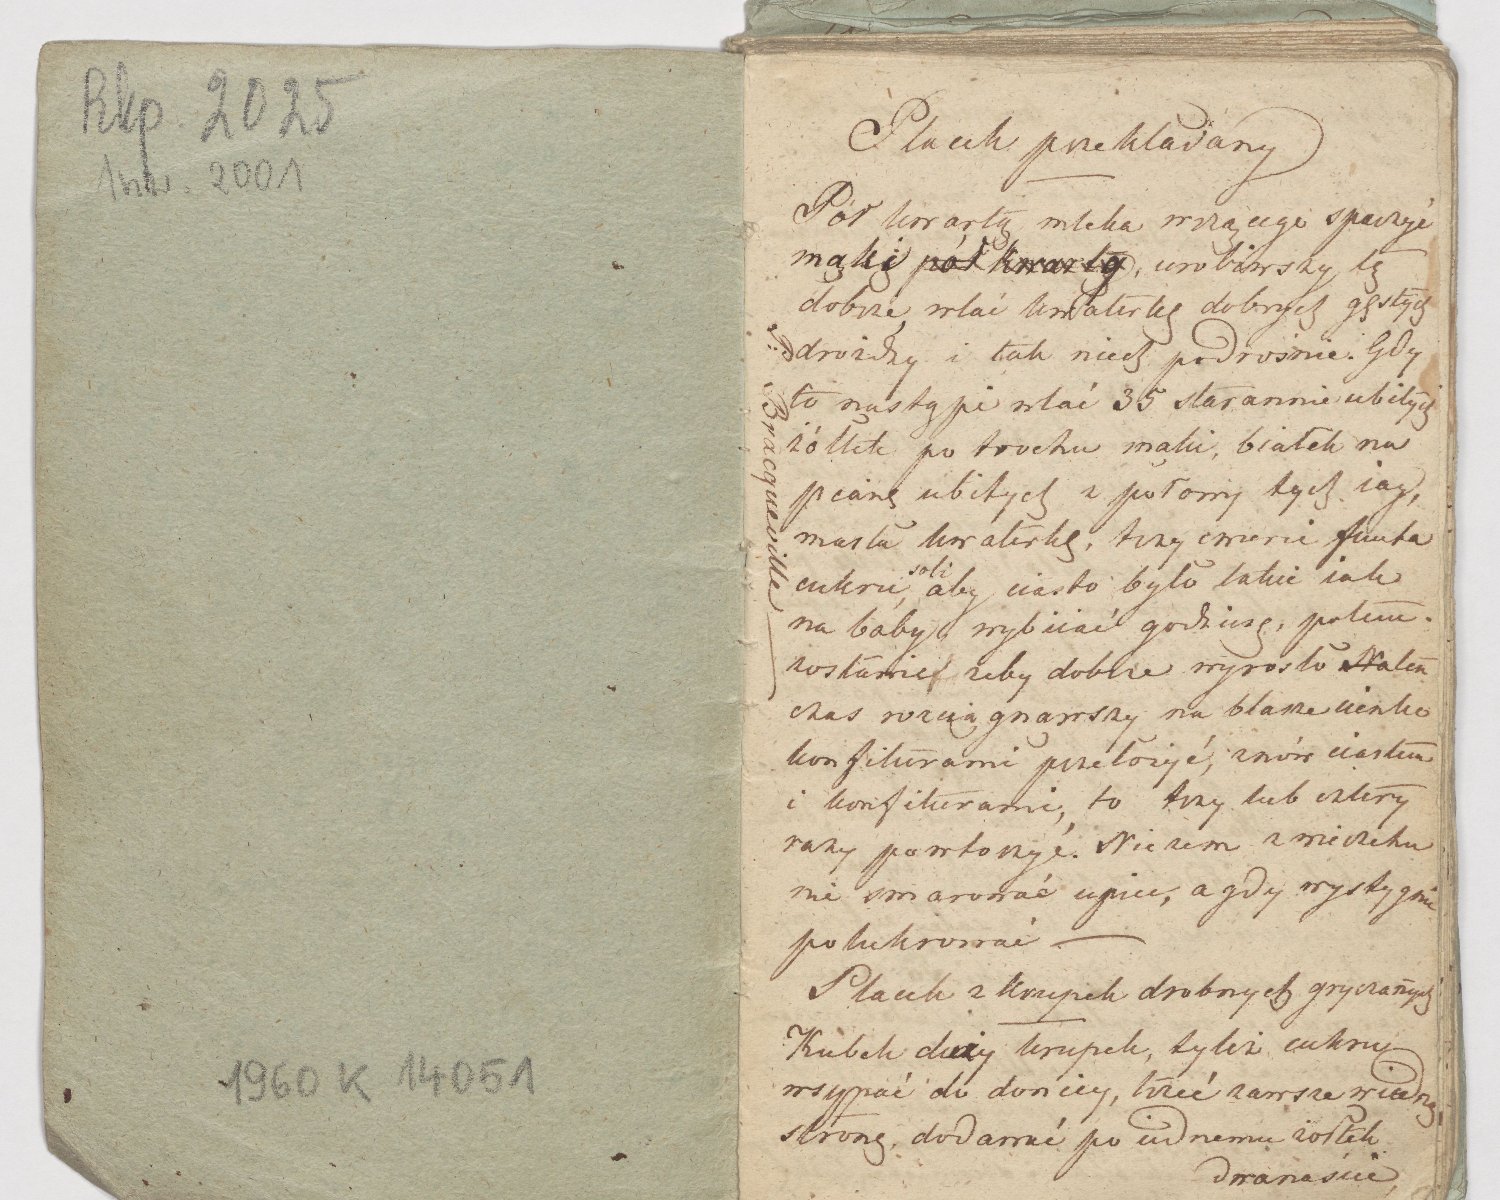 Rkp. 2025
Inw. 2001
1960 K 14051
Placek przekładany
Pół kwarty mleka wrzącego sparzyć
mąki pół kwarty, urobiwszy tę
dobrze wlać kwaterkę dobrych gęstych
drożdży i tak niech podrośnie. Gdy
to nastąpi wlać 35 starannie ubitych
żółtek po trochu mąki, białek na
pianę ubitych z połowy tych iay,
masła kwaterkę, trzy cwierci funta
cukru, soli aby ciasto było takie iak
na baby, wybiiać godzinę, potem
zostawić żeby dobrze wyrosło Naten
czas rozciągnąwszy na blasze cienko
konfiturami przełożyć, znów ciastem
i konfiturami, to trzy lub cztery
razy powtorzyć. Niczem z wierzchu
nie smarować upiec, a gdy wystygnie
polukrować —
Placek z krupek drobnych gryczanych
Kubek duży krupek, tyleż cukru
wsypać do donicy, trzeć zawsze w iedną
stronę, dodawać po iednemu żółtek
dwanaście
P: Bracqueville